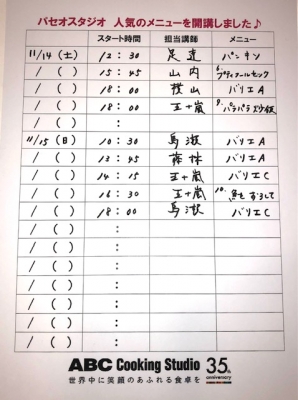 パセオスタジオ 人気のメニューを開講しました♪
スタート時間 担当講師 メニュー
11/14(土) 12:30 足達 パンキン
/ ( ) 15:45 山内
/ ( ) 18:00 横山 バリエA
/ ( ) 18:00 五十嵐 9.パラパラ
/ ( ) :
11/15(日) 10:30 馬淵 バリエA
/ ( ) 13:45 バリエA
/ ( ) 14:15 五十嵐 バリエC
/ ( ) 16:30 五十嵐 10.魚をおろして
/ ( ) 18:00 馬淵 バリエC
/ ( ) :
/ ( ) :
/ ( ) :
/ ( ) :
/ ( ) :
/ ( ) :
ABC Cooking Studio 35th anniversary
世界中に笑顔のあふれる食卓を